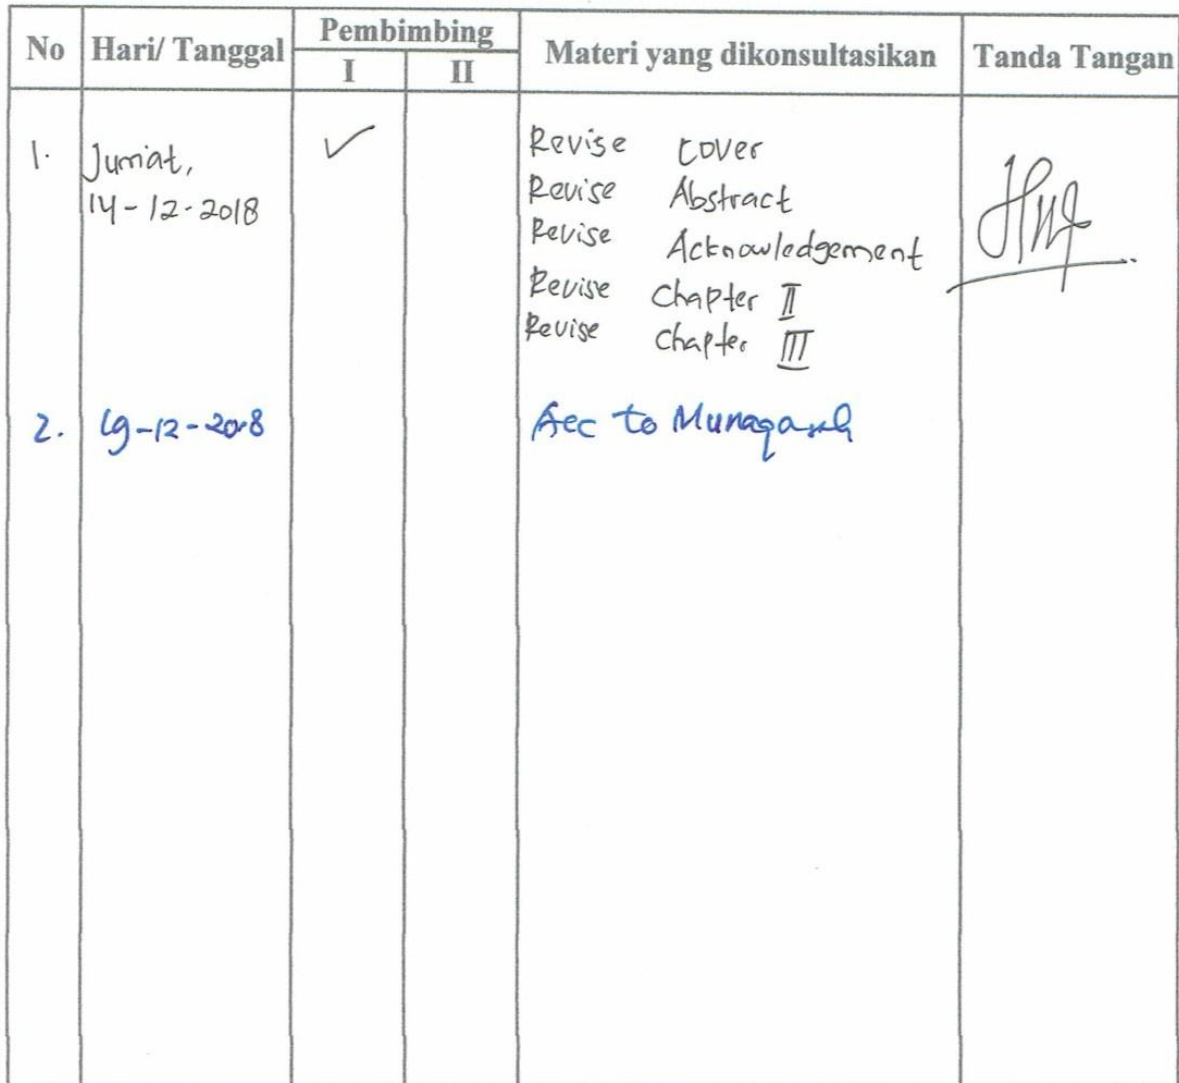 No Hari/ Tanggal Pembimbing Materi yang dikonsultasikan Tanda Tangan
I II
1. Jumat, ✓ Revise Cover
14-12-2018 Revise Abstract
Revise Acknowledgement
Revise Chapter II
Revise Chapter III
2. 19-12-2018 Acc to Munaqasah